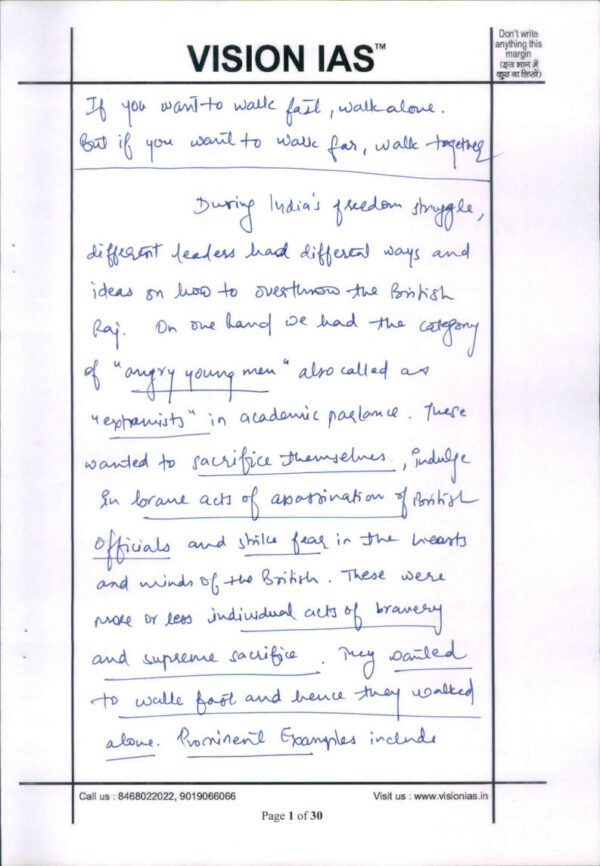 VISION IAS™
Don't write
anything this
margin
(इस भाग में
कुछ ना लिखें)
If you want to walk fast, walk alone.
But if you want to walk far, walk together
During India's freedom struggle,
different leaders had different ways and
ideas on how to overthrow the British
Raj. On one hand we had the category
of "angry young men" also called as
"extremists" in academic parlance. These
wanted to sacrifice themselves, indulge
in brave acts of assassination of British
Officials and strike fear in the hearts
and minds of the British. These were
more or less individual acts of bravery
and supreme sacrifice. They wanted
to walk fast and hence they walked
alone. Prominent Examples include
Call us : 8468022022, 9019066066
Visit us : www.visionias.in
Page 1 of 30